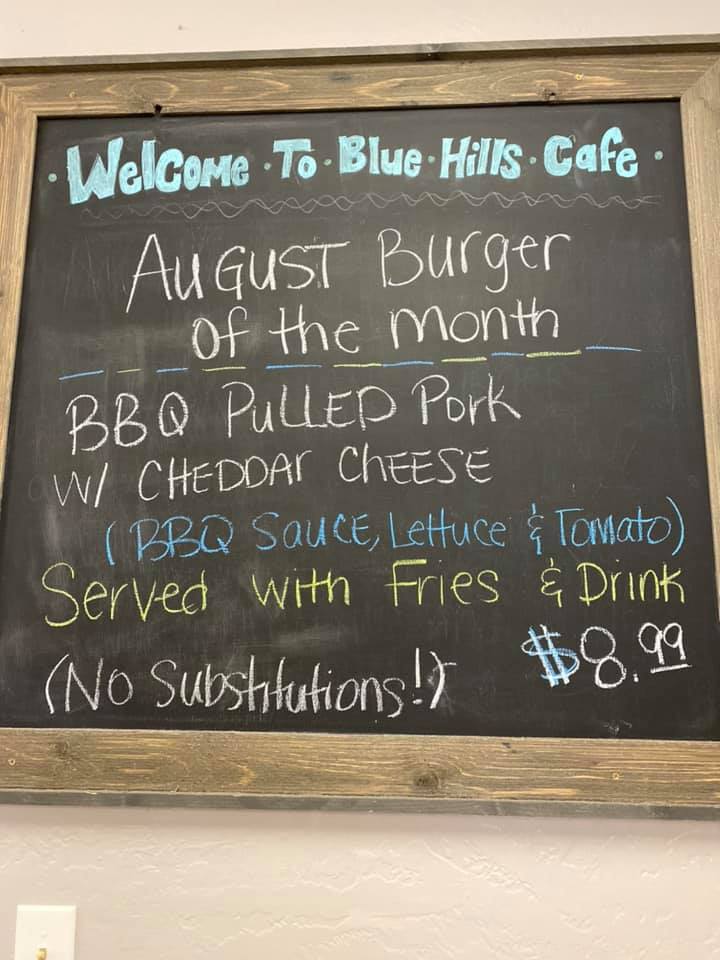 · Welcome · To · Blue · Hills · Cafe ·
August Burger
of the month
BBQ PULLED Pork
W/ CHEDDAr CHEESE
(BBQ SauCE, Lettuce & Tomato)
Served with Fries & Drink
(No Substitutions!) $8.99